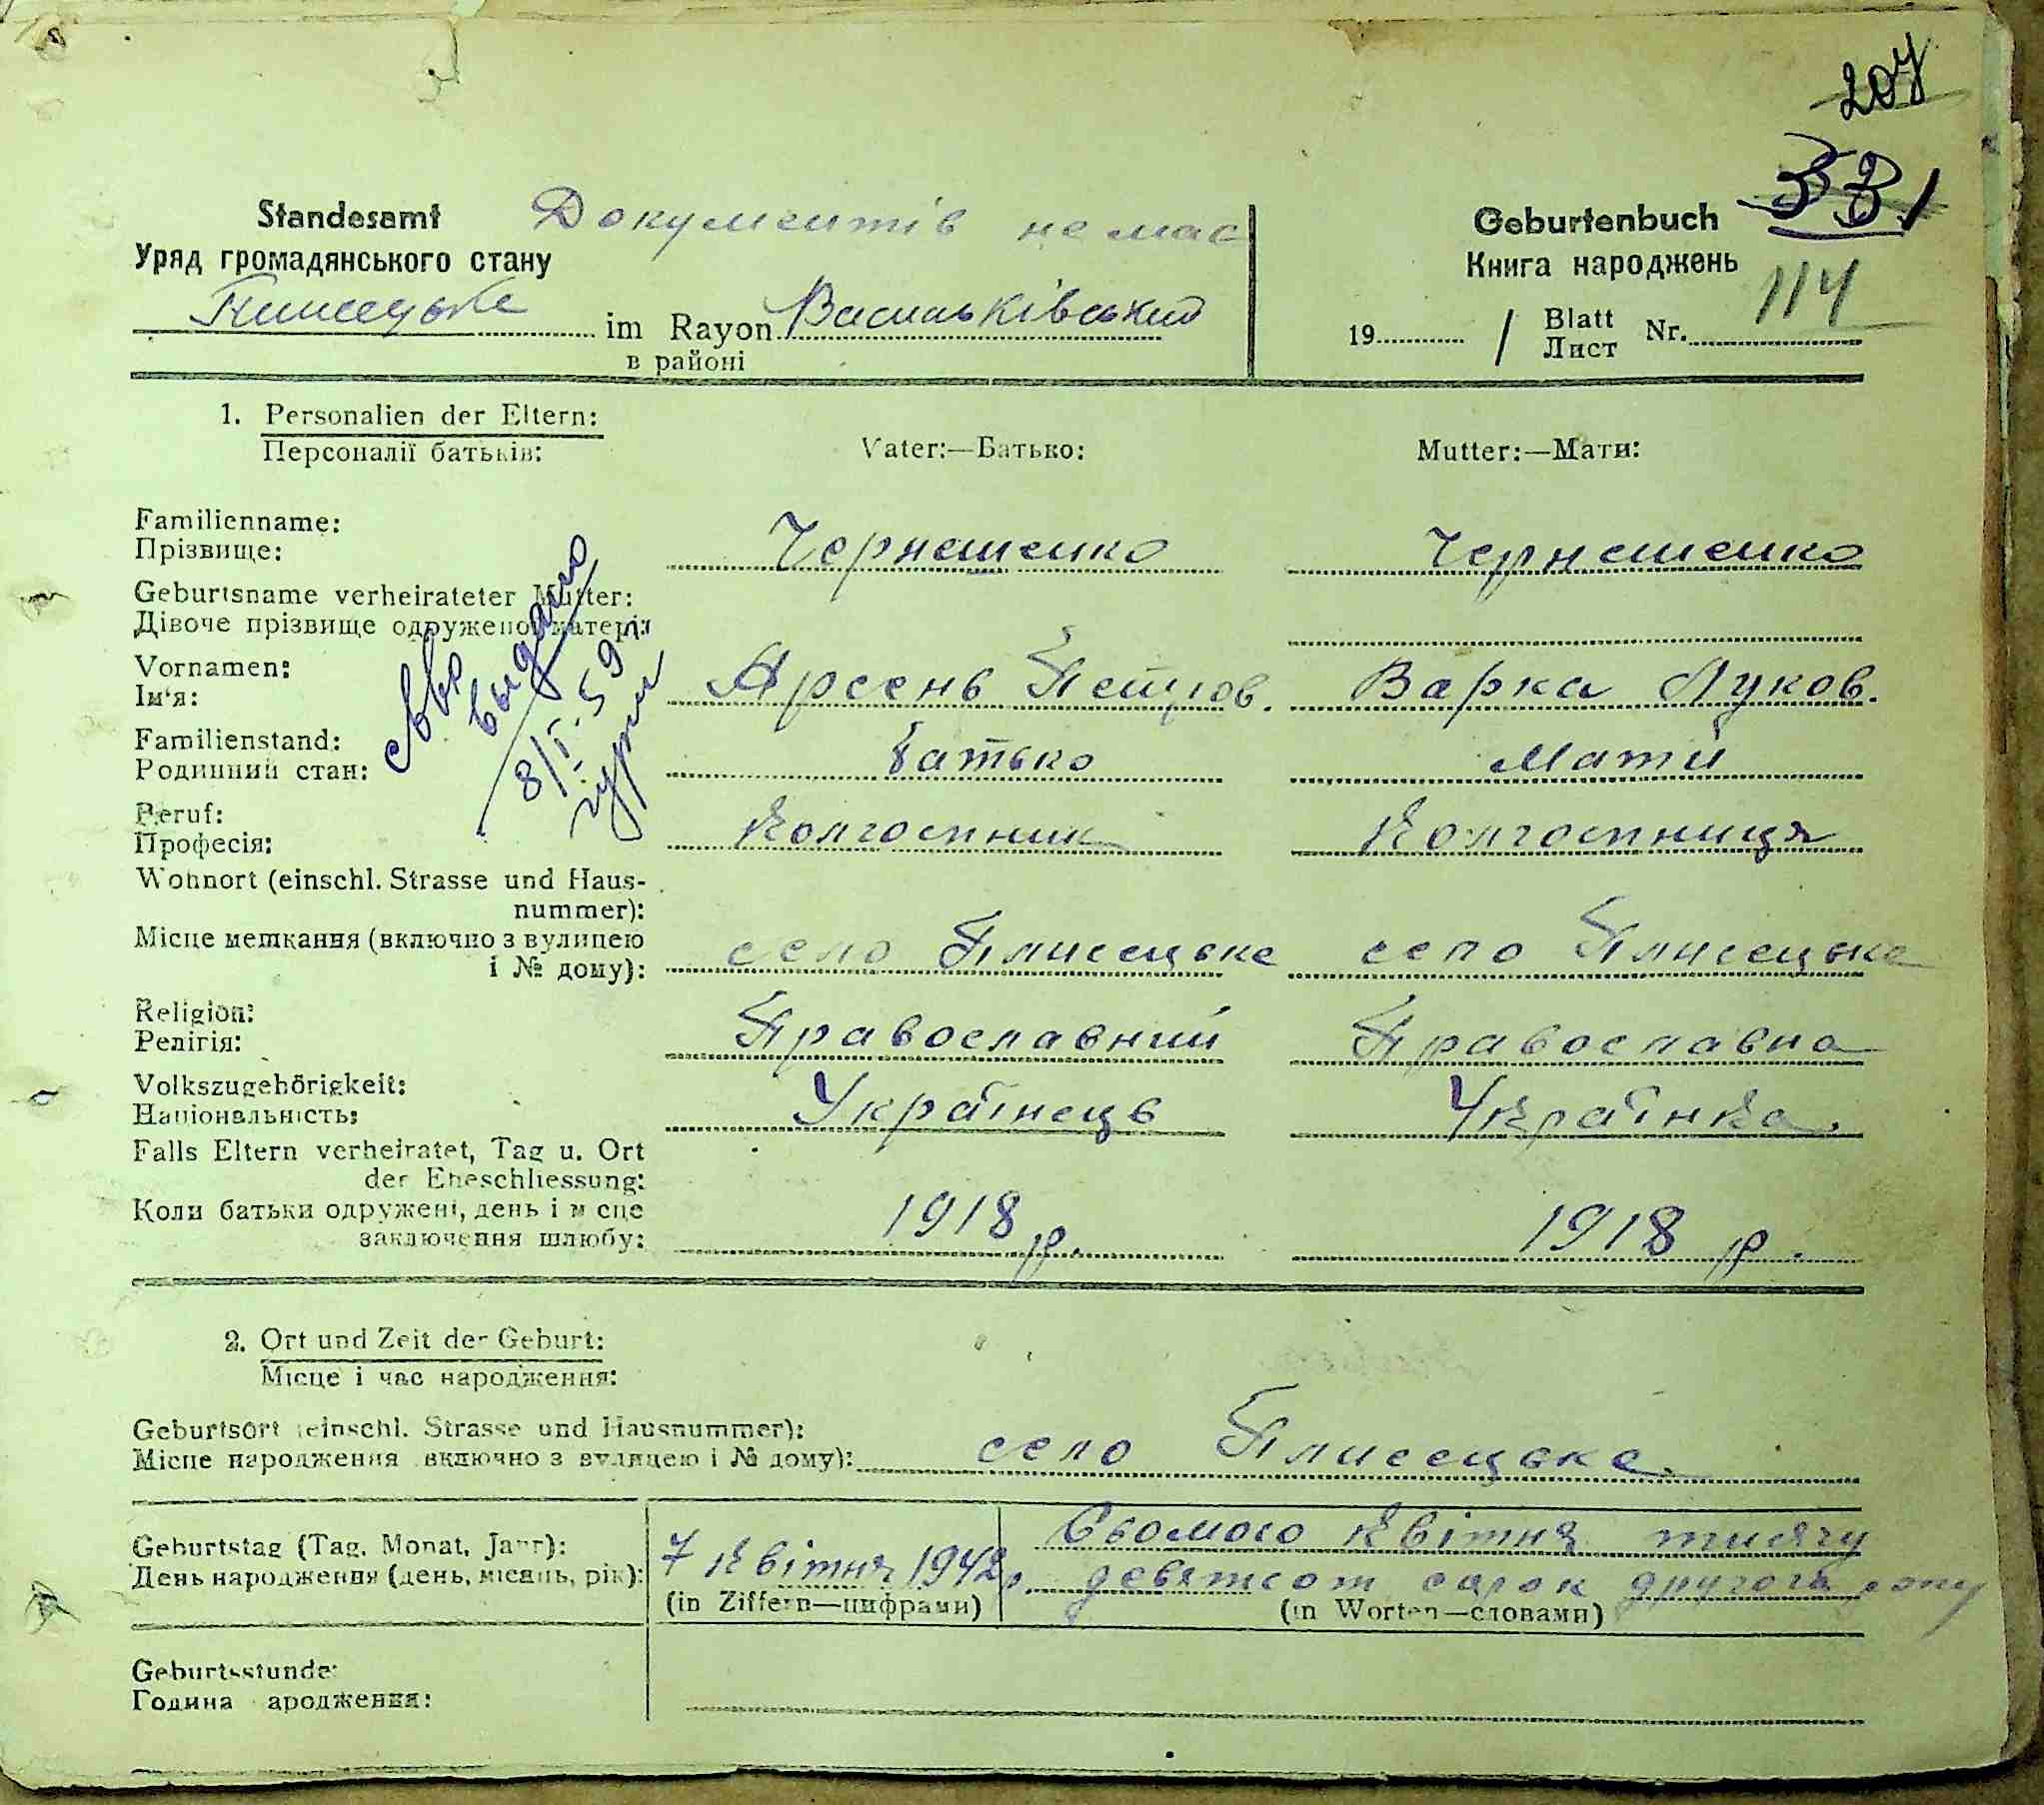 207
331
Standesamt Документів немає Geburtenbuch
Уряд громадянського стану Книга народжень
Плисецьке im Rayon Васильківський 19 / Blatt Nr. 114
в районі Лист
1. Personalien der Eltern:
Персоналії батьків: Vater:—Батько: Mutter:—Мати:
Familienname:
Прізвище: Чернешенко Чернешенко
Geburtsname verheirateter Mutter:
Дівоче прізвище одруженої матері:
Vornamen:
Ім'я: Арсень Петров. Варка Луков.
Familienstand:
Родинний стан: батько мати
видано
8/I-59
Beruf:
Професія: Колгоспник Колгоспниця
Wohnort (einschl. Strasse und Haus-
nummer):
Місце мешкання (включно з вулицею
і № дому): село Плисецьке село Плисецьке
Religion:
Релігія: Православний Православна
Volkszugehörigkeit:
Національність: Українець Українка.
Falls Eltern verheiratet, Tag u. Ort
der Eheschliessung:
Коли батьки одружені, день і м сце
заключення шлюбу: 1918 р. 1918 р.
2. Ort und Zeit der Geburt:
Місце і час народження:
Geburtsort (einschl. Strasse und Hausnummer):
Місце народження включно з вулицею і № дому): село Плисецьке.
Geburtstag (Tag, Monat, Jahr): Сьомого Квітня тисячу
День народження (день, місяць, рік): 7 Квітня 1942 р. девятсот сорок другого року
(in Ziffern—цифрами) (in Worten—словами)
Geburtsstunde:
Година ародження: